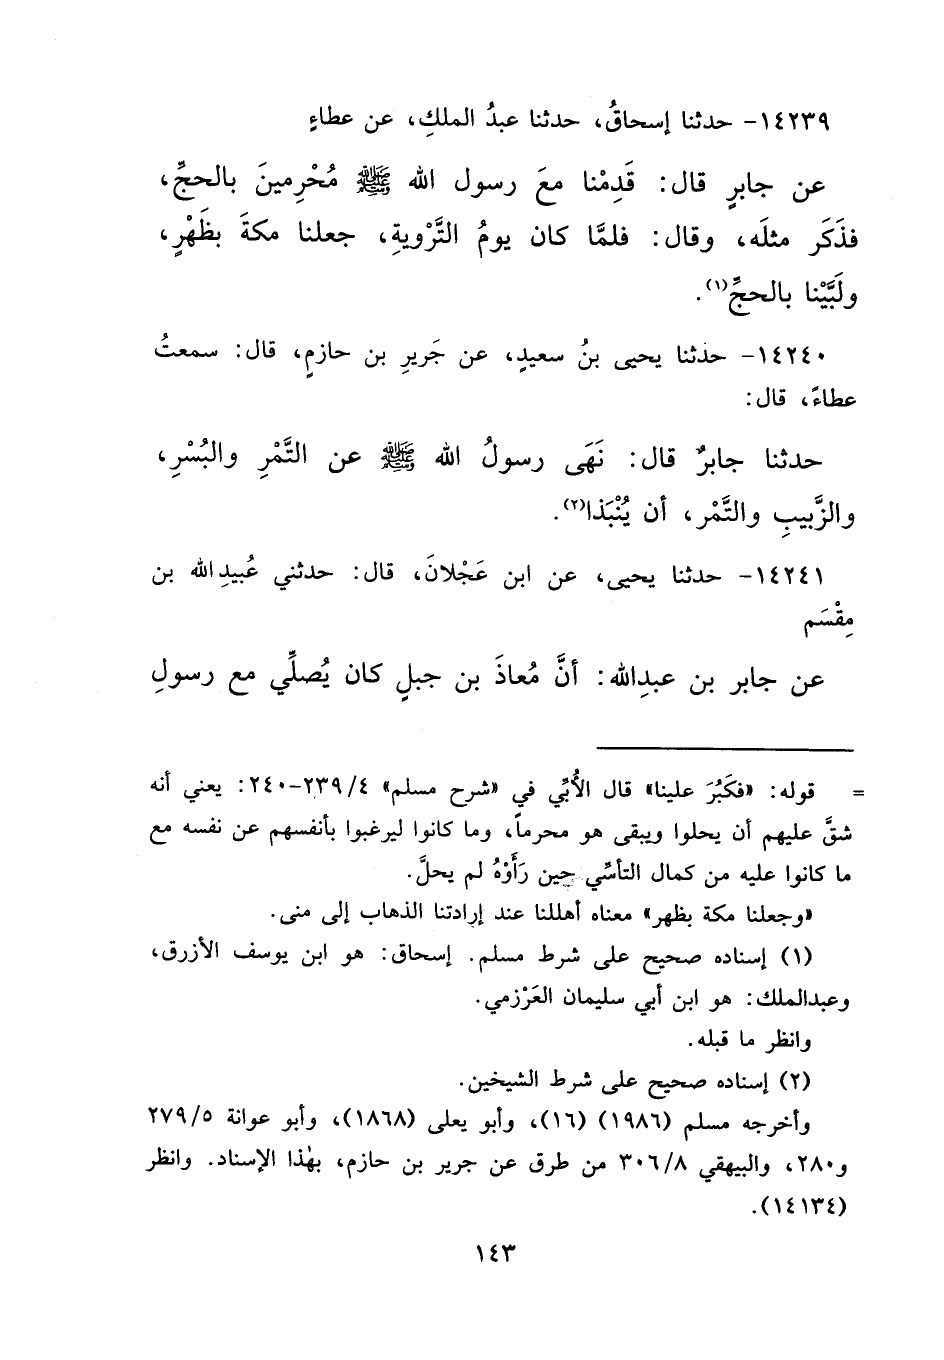 ١٤٢٣٩- حدثنا إسحاقُ، حدثنا عبدُ الملكِ، عن عطاءٍ
عن جابرٍ قال: قَدِمْنا معَ رسول الله ﷺ مُحْرِمينَ بالحجِّ،
فذَكَر مثلَه، وقال: فلمَّا كان يومُ التَّرْويةِ، جعلنا مكةَ بظَهْرٍ،
ولَبَّيْنا بالحجِّ(١).
١٤٢٤٠- حدثنا يحيى بنُ سعيدٍ، عن جَريرِ بن حازمٍ، قال: سمعتُ
عطاءً، قال:
حدثنا جابرٌ قال: نَهَى رسولُ الله ﷺ عن التَّمْرِ والبُسْرِ،
والزَّبيبِ والتَّمْر، أن يُنْبَذا(٢).
١٤٢٤١- حدثنا يحيى، عن ابن عَجْلانَ، قال: حدثني عُبيدِالله بن
مِقْسَم
عن جابر بن عبدِالله: أنَّ مُعاذَ بن جبلٍ كان يُصلِّي مع رسولِ
= قوله: «فكَبُرَ علينا» قال الأُبِّي في «شرح مسلم» ٤/‏٢٣٩-٢٤٠: يعني أنه
شقَّ عليهم أن يحلوا ويبقى هو محرماً، وما كانوا ليرغبوا بأنفسهم عن نفسه مع
ما كانوا عليه من كمال التأسِّي حين رَأَوْهُ لم يحلَّ.
«وجعلنا مكة بظهر» معناه أهللنا عند إرادتنا الذهاب إلى منى.
(١) إسناده صحيح على شرط مسلم. إسحاق: هو ابن يوسف الأزرق،
وعبدالملك: هو ابن أبي سليمان العَرْزمي.
وانظر ما قبله.
(٢) إسناده صحيح على شرط الشيخين.
وأخرجه مسلم (١٩٨٦) (١٦)، وأبو يعلى (١٨٦٨)، وأبو عوانة ٥/‏٢٧٩
و٢٨٠، والبيهقي ٨/‏٣٠٦ من طرق عن جرير بن حازم، بهٰذا الإسناد. وانظر
(١٤١٣٤).
١٤٣